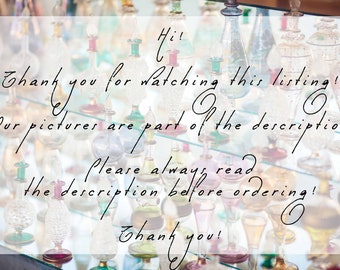 Hi!
Thank you for watching this listing!
Our pictures are part of the description
Please always read
the description before ordering!
Thank you!